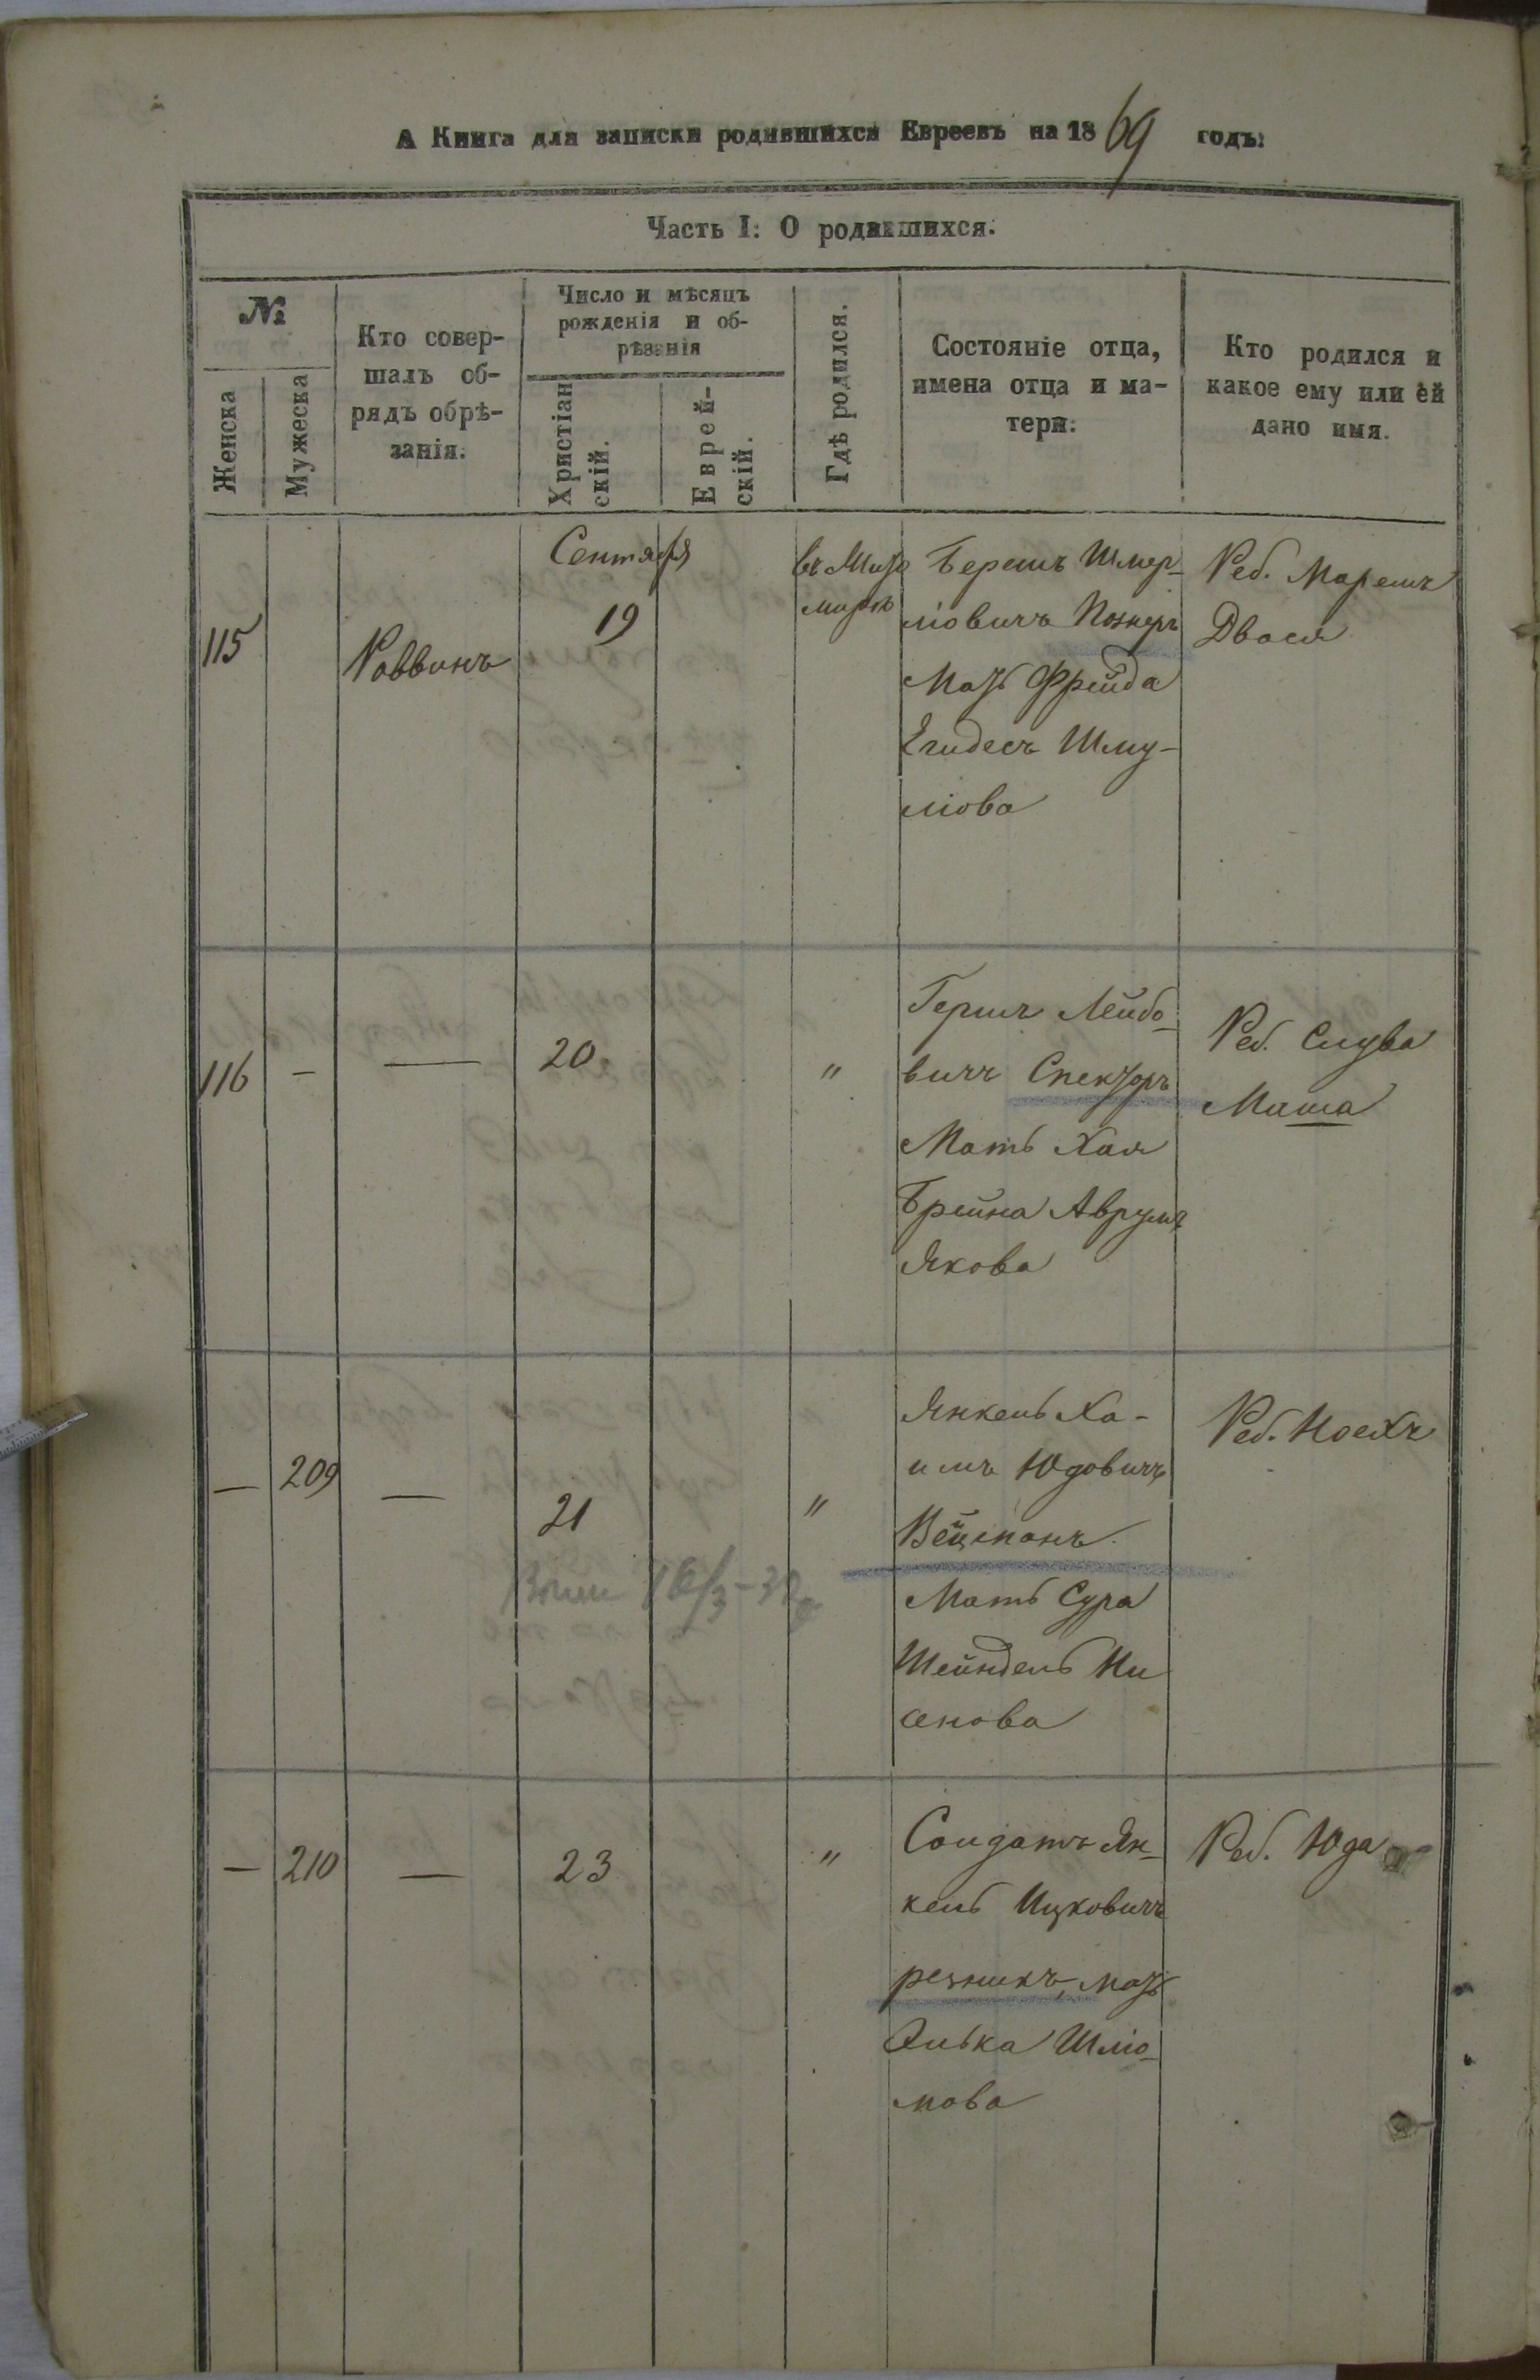 А Книга для записки родившихся Евреевъ на 1869 годъ:
Часть I: О родившихся.
№
Женска
Мужеска
Кто совер-
шалъ об-
рядъ обрѣ-
занія.
Число и мѣсяцъ
рожденія и об-
рѣзанія
Христіан
скій.
Еврей-
скій.
Гдѣ родился.
Состояніе отца,
имена отца и ма-
тери.
Кто родился и
какое ему или ей
дано имя.
115
Раввинъ
Сентября
19
въ
Берешъ Шмер-
ліовичъ Познеръ
Мать Фрейда
Егидесъ Шму-
ліова
Реб.
Двося
116 — —
20
"
Гершъ Лейбо-
вичъ Спекторъ
Мать Хая
Брейна Аврумъ
Якова
Реб. Слува
Маша
— 209 —
21
"
Янкель Ха-
имъ Юдовичъ
Вейцманъ.
Мать Сура
Шейндель Ни
сенова
Реб. Ноехъ
— 210 —
23
"
Солдатъ Ян-
кель Ицковичъ
резникъ, мать
Элька Шліо-
мова
Реб. Юда